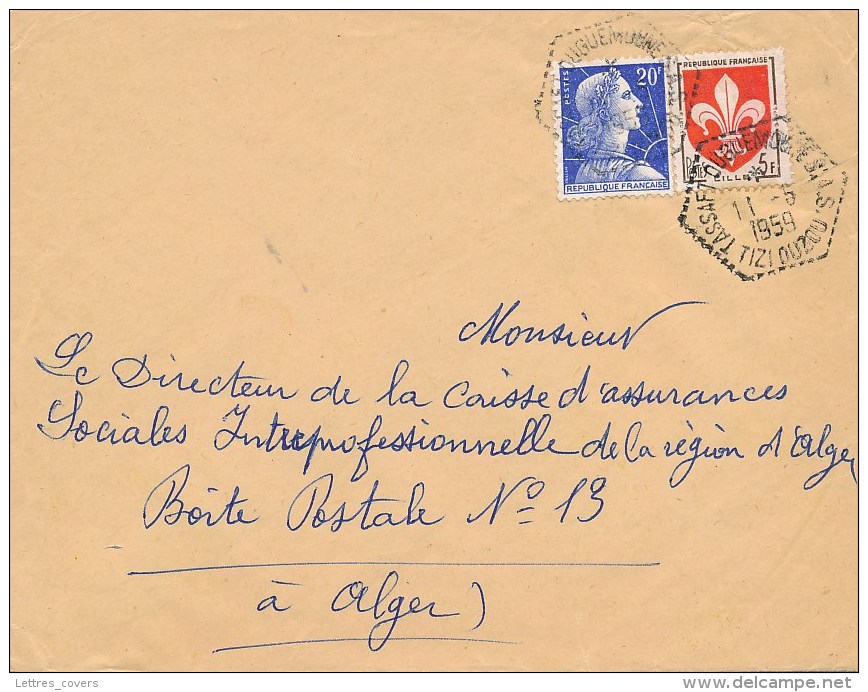 POSTES
20F
REPUBLIQUE FRANÇAISE
REPUBLIQUE FRANÇAISE
POSTES
LILLE
5F
TASSAFT OUGUEMOUNE S.A.S.
11 -5
1959
TIZI OUZOU
Monsieur
Le Directeur de la Caisse d'assurances
Sociales Intreprofessionnelle de la région d'Alger
Boite Postale No 13
à Alger
Lettres_covers
delcampe.net